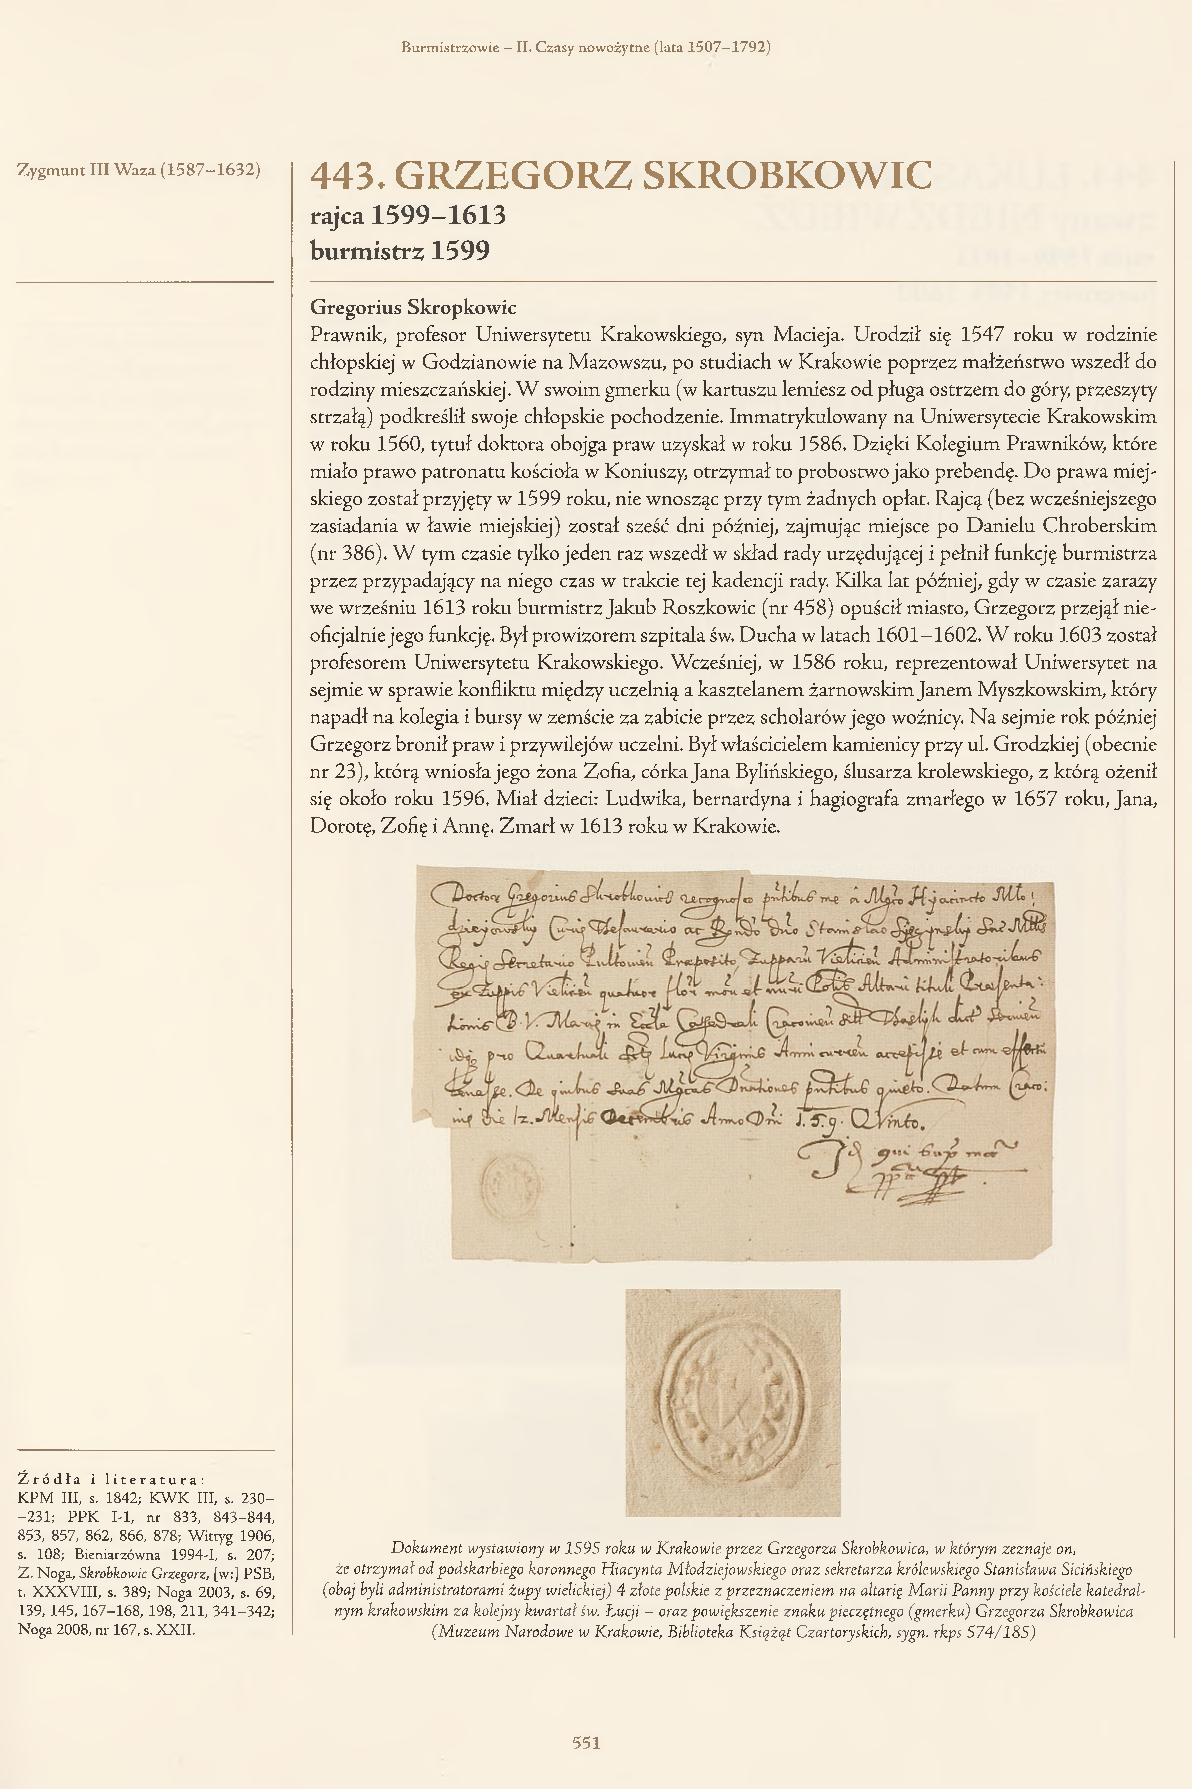 Burmistrzowie – II. Czasy nowożytne (lata 1507–1792)
Zygmunt III Waza (1587–1632)
443. GRZEGORZ SKROBKOWIC
rajca 1599–1613
burmistrz 1599
Gregorius Skropkowic
Prawnik, profesor Uniwersytetu Krakowskiego, syn Macieja. Urodził się 1547 roku w rodzinie
chłopskiej w Godzianowie na Mazowszu, po studiach w Krakowie poprzez małżeństwo wszedł do
rodziny mieszczańskiej. W swoim gmerku (w kartuszu lemiesz od pługa ostrzem do góry, przeszyty
strzałą) podkreślił swoje chłopskie pochodzenie. Immatrykulowany na Uniwersytecie Krakowskim
w roku 1560, tytuł doktora obojga praw uzyskał w roku 1586. Dzięki Kolegium Prawników, które
miało prawo patronatu kościoła w Koniuszy, otrzymał to probostwo jako prebendę. Do prawa miej-
skiego został przyjęty w 1599 roku, nie wnosząc przy tym żadnych opłat. Rajcą (bez wcześniejszego
zasiadania w ławie miejskiej) został sześć dni później, zajmując miejsce po Danielu Chroberskim
(nr 386). W tym czasie tylko jeden raz wszedł w skład rady urzędującej i pełnił funkcję burmistrza
przez przypadający na niego czas w trakcie tej kadencji rady. Kilka lat później, gdy w czasie zarazy
we wrześniu 1613 roku burmistrz Jakub Roszkowic (nr 458) opuścił miasto, Grzegorz przejął nie-
oficjalnie jego funkcję. Był prowizorem szpitala św. Ducha w latach 1601–1602. W roku 1603 został
profesorem Uniwersytetu Krakowskiego. Wcześniej, w 1586 roku, reprezentował Uniwersytet na
sejmie w sprawie konfliktu między uczelnią a kasztelanem żarnowskim Janem Myszkowskim, który
napadł na kolegia i bursy w zemście za zabicie przez scholarów jego woźnicy. Na sejmie rok później
Grzegorz bronił praw i przywilejów uczelni. Był właścicielem kamienicy przy ul. Grodzkiej (obecnie
nr 23), którą wniosła jego żona Zofia, córka Jana Bylińskiego, ślusarza krolewskiego, z którą ożenił
się około roku 1596. Miał dzieci: Ludwika, bernardyna i hagiografa zmarłego w 1657 roku, Jana,
Dorotę, Zofię i Annę. Zmarł w 1613 roku w Krakowie.
Doctor Gregorius Skrobkowicz recognosco me a Hyacincto
ac Stanislao
Regis Secretario Praeposito, Administratoribus
quatuor et Altaris tituli
B. V. Mariae in Cathedrali
pro Quartuali Virginis Anni accepisse et cum
De quibus quieto. Datum
die 12. Mensis Decembris Anno 1.5.9. Quinto.
Źródła i literatura:
KPM III, s. 1842; KWK III, s. 230–
–231; PPK I-1, nr 833, 843–844,
853, 857, 862, 866, 878; Wittyg 1906,
s. 108; Bieniarzówna 1994-I, s. 207;
Z. Noga, Skrobkowic Grzegorz, [w:] PSB,
t. XXXVIII, s. 389; Noga 2003, s. 69,
139, 145, 167–168, 198, 211, 341–342;
Noga 2008, nr 167, s. XXII.
Dokument wystawiony w 1595 roku w Krakowie przez Grzegorza Skrobkowica, w którym zeznaje on,
że otrzymał od podskarbiego koronnego Hiacynta Młodziejowskiego oraz sekretarza królewskiego Stanisława Sicińskiego
(obaj byli administratorami żupy wielickiej) 4 złote polskie z przeznaczeniem na altarię Marii Panny przy kościele katedral-
nym krakowskim za kolejny kwartał św. Łucji – oraz powiększenie znaku pieczętnego (gmerku) Grzegorza Skrobkowica
(Muzeum Narodowe w Krakowie, Biblioteka Książąt Czartoryskich, sygn. rkps 574/185)
551